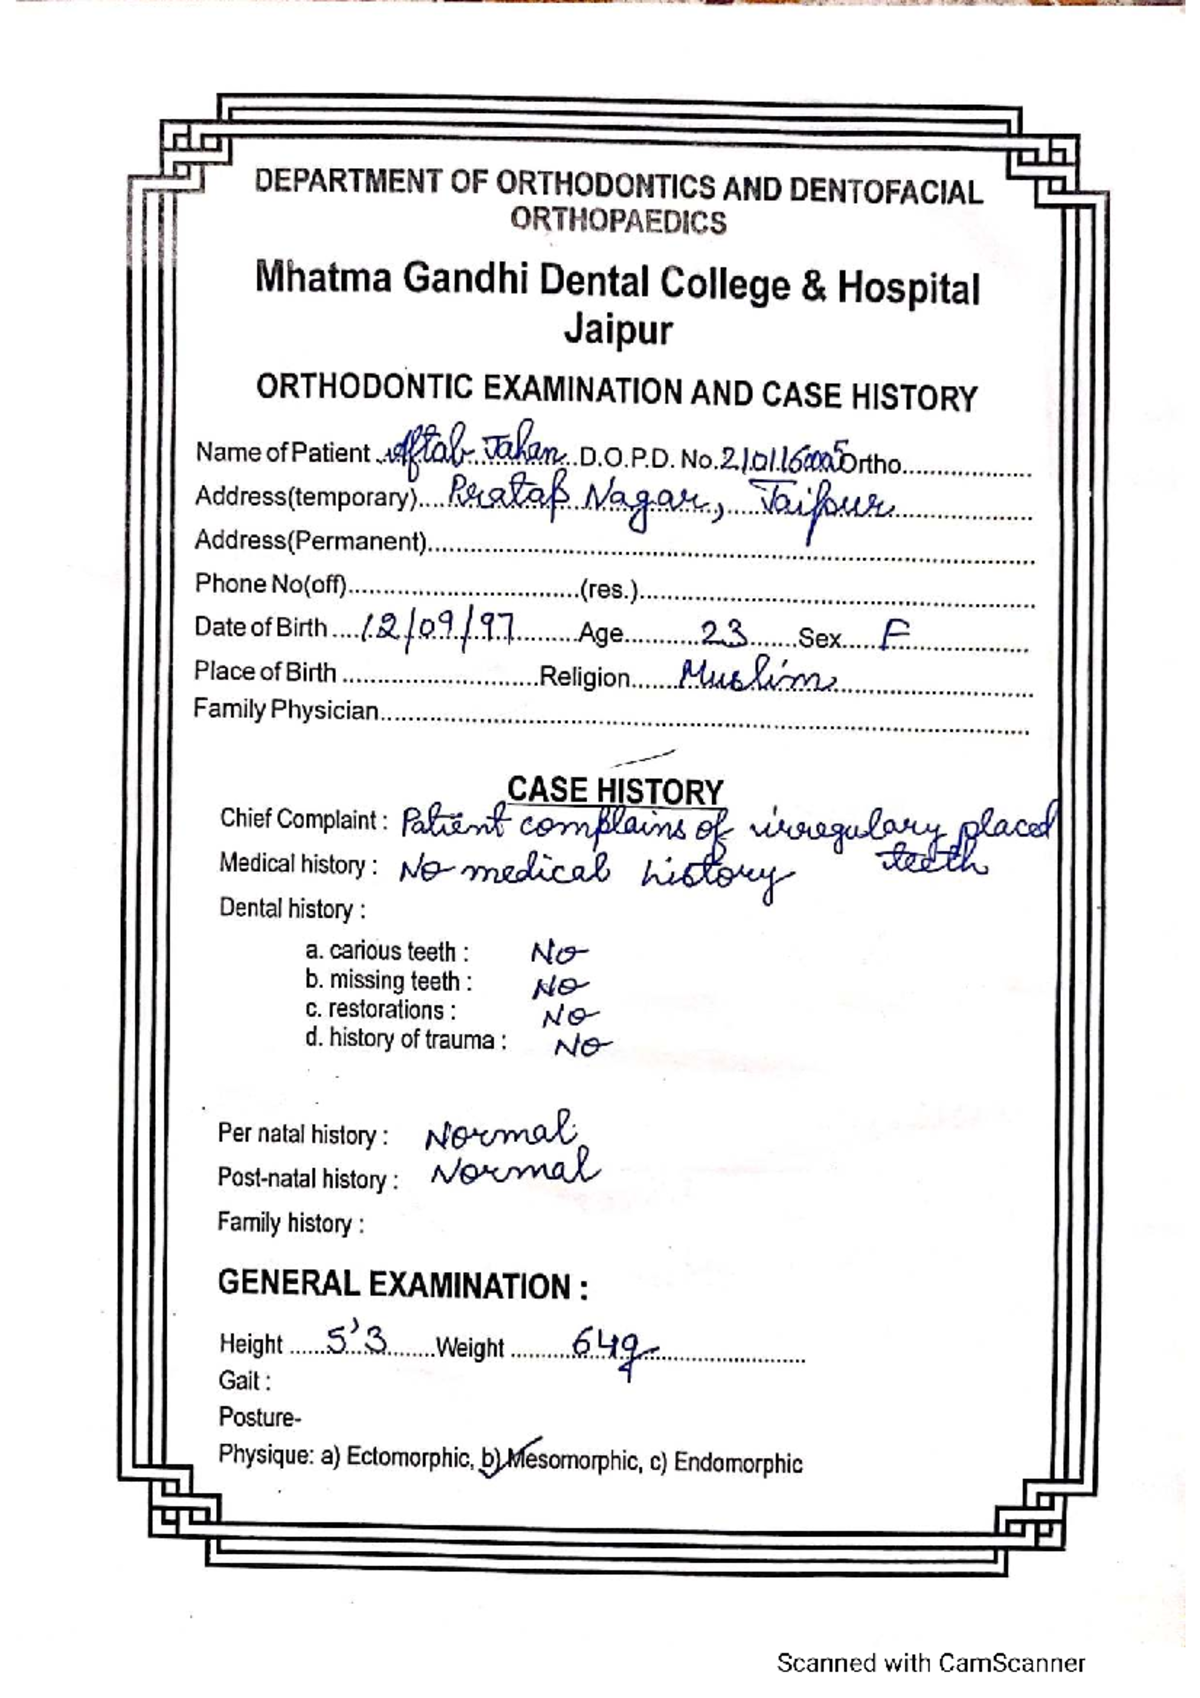 DEPARTMENT OF ORTHODONTICS AND DENTOFACIAL
ORTHOPAEDICS
Mhatma Gandhi Dental College & Hospital
Jaipur
ORTHODONTIC EXAMINATION AND CASE HISTORY
Name of Patient Aftab Jahan D.O.P.D. No. Ortho
Address(temporary) Pratap Nagar, Jaipur
Address(Permanent)
Phone No(off) (res.)
Date of Birth 12/09/97 Age 23 Sex F
Place of Birth Religion Muslim
Family Physician
CASE HISTORY
Chief Complaint : Patient complains of irregulary placed
teeth
Medical history : No medical history
Dental history :
a. carious teeth : No
b. missing teeth : No
c. restorations : No
d. history of trauma : No
Per natal history : Normal
Post-natal history : Normal
Family history :
GENERAL EXAMINATION :
Height 5'3 Weight
Gait :
Posture-
Physique: a) Ectomorphic, b) Mesomorphic, c) Endomorphic
Scanned with CamScanner